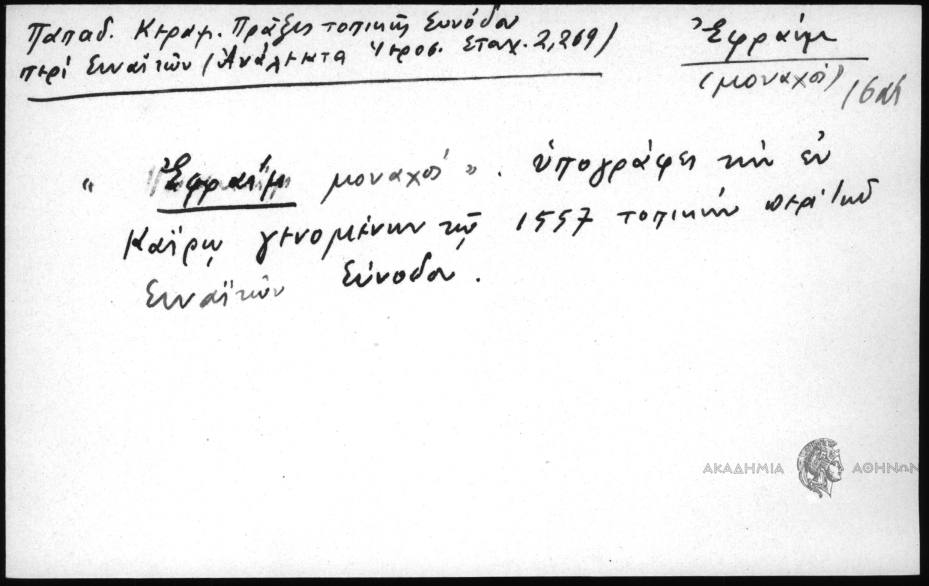 Παπαδ. Κεραμ. Πράξις τοπικῆς Συνόδου
περί Σιναϊτῶν (Ἀνάλεκτα Ἱεροσ. Σταχ. 2, 269)
Ἐφραίμ
(μοναχός) 16 αἰ
" Ἐφραίμ μοναχός ". ὑπογράφει τήν ἐν
Καΐρῳ γενομένην τῷ 1557 τοπικήν περί τῶν
Σιναϊτῶν Σύνοδον.
ΑΚΑΔΗΜΙΑ ΑΘΗΝΩΝ